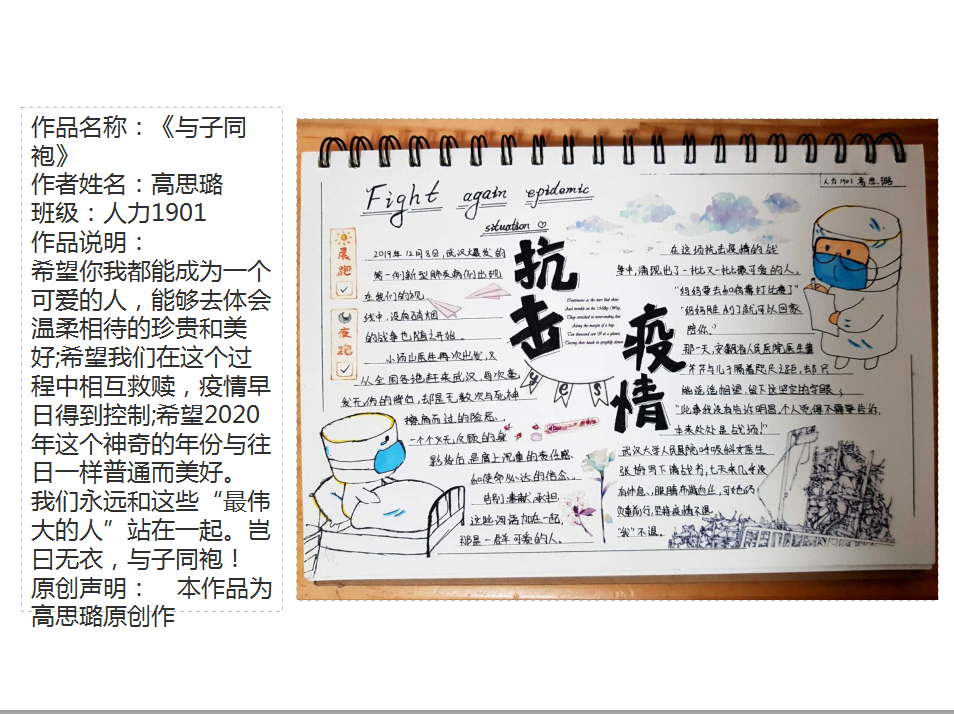 作品名称：《与子同
袍》
作者姓名：高思璐
班级：人力1901
作品说明：
希望你我都能成为一个
可爱的人，能够去体会
温柔相待的珍贵和美
好;希望我们在这个过
程中相互救赎，疫情早
日得到控制;希望2020
年这个神奇的年份与往
日一样普通而美好。
我们永远和这些“最伟
大的人”站在一起。岂
曰无衣，与子同袍！
原创声明： 本作品为
高思璐原创作
人力1901 高思璐
Fight again epidemic
situation
晨跑
夜跑
抗击
疫情
yes
2019年12月8日,武汉大暴发的
第一例新型肺炎病例出现
在我们的视
线中,没有硝烟
的战争也随之开始。
小汤山医生再次出发,又
从全国各地赶来武汉,再次毫
发无伤的背色,却是无数次与死神
擦肩而过的险恶、
一个个义无反顾的身
影背后是肩上沉重的责任感、
如使命必达的信念、
告别 奉献 承担,
这些词语加在一起,
那是一群可爱的人。
在这场抗击疫情的战
争中,涌现出了一批又一批最可爱的人。
"妈妈要去和病毒打比赛了"
"妈妈胜利了就可以回家
陪你。"
那一天,安徽省人民医院医生董
芹芹与儿子隔着咫尺之距,却只
能遥遥相望,留下这坚定的字眼;
"此事我没有告诉明昌,个人觉得不需要告诉,
本来处处是战场!"
武汉大学人民医院呼吸科女医生
张旃写下请战书,七天来几乎没
有休息,眼睛布满血丝,可她仍
负重前行,坚持疫情不退,
"我"不退。